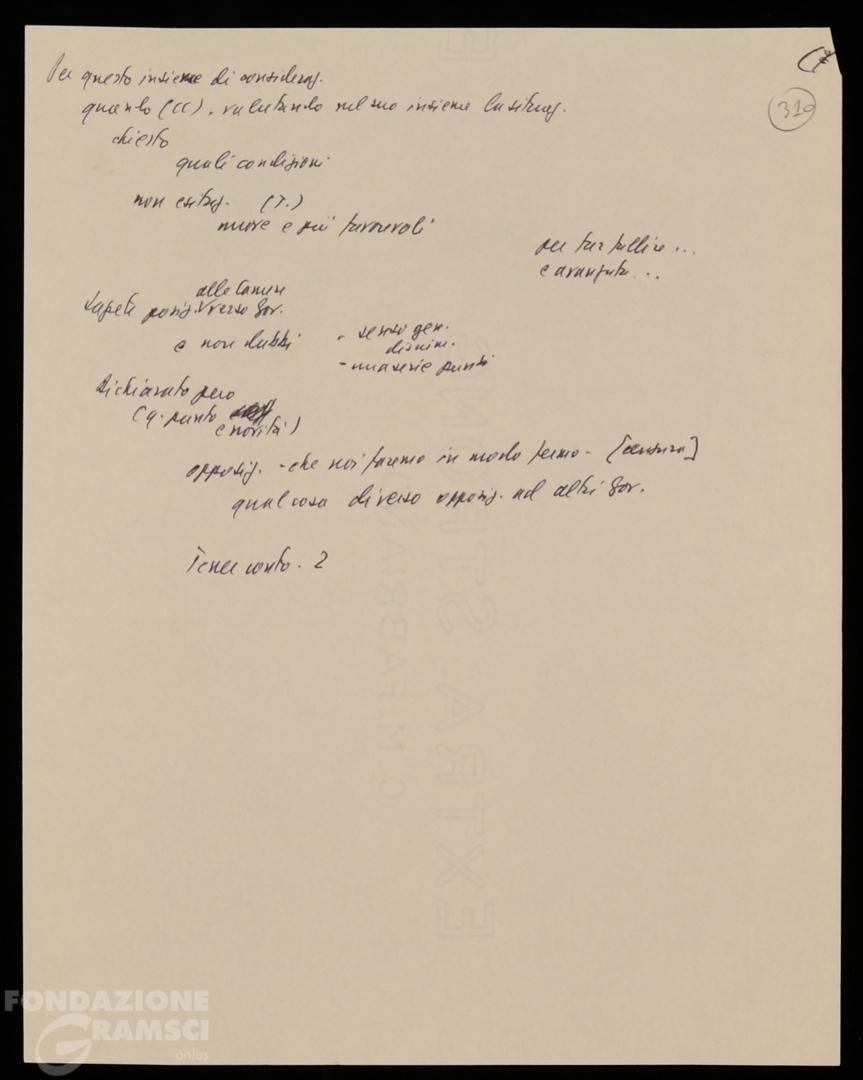 (7
310
Per questo insieme di consideraz.
quando (CC), valutando nel suo insieme la situaz.
chiesto
quali condizioni
non esitaz. (T.)
nuove e più favorevoli
per far fallire ...
e avanzata ...
alle Camere
Sapete posiz. verso Gov.
e non dubbi
- senso gen.
- una serie punti
Dichiarato però
(q. punto
e novità)
opposiz. - che noi faremo in modo fermo - [censura]
qualcosa diverso opposiz. ad altri Gov.
Tener conto. 2
EXTRA STRONG
C.M.FABRIANO
FONDAZIONE
GRAMSCI
onlus